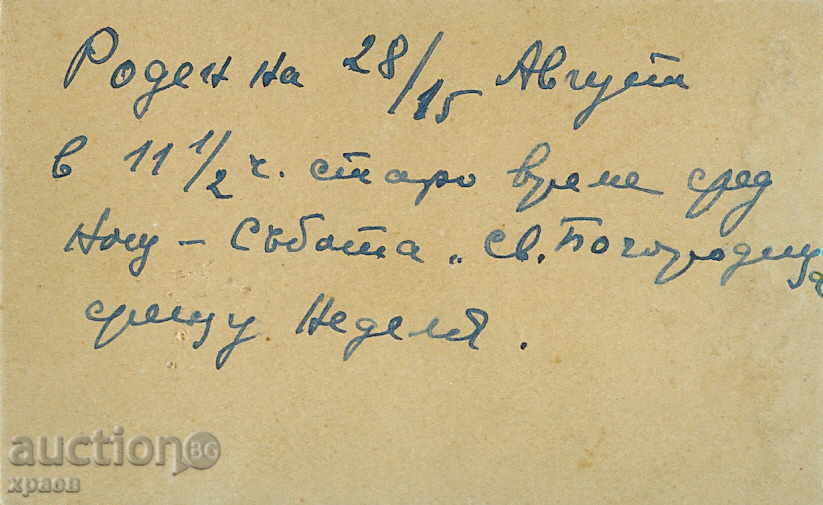 Роден на 28/15 Август
в 11 1/2 ч. старо време сред
нощ – Събота „ св. Богородица
срещу Неделя.
auction BG
храов